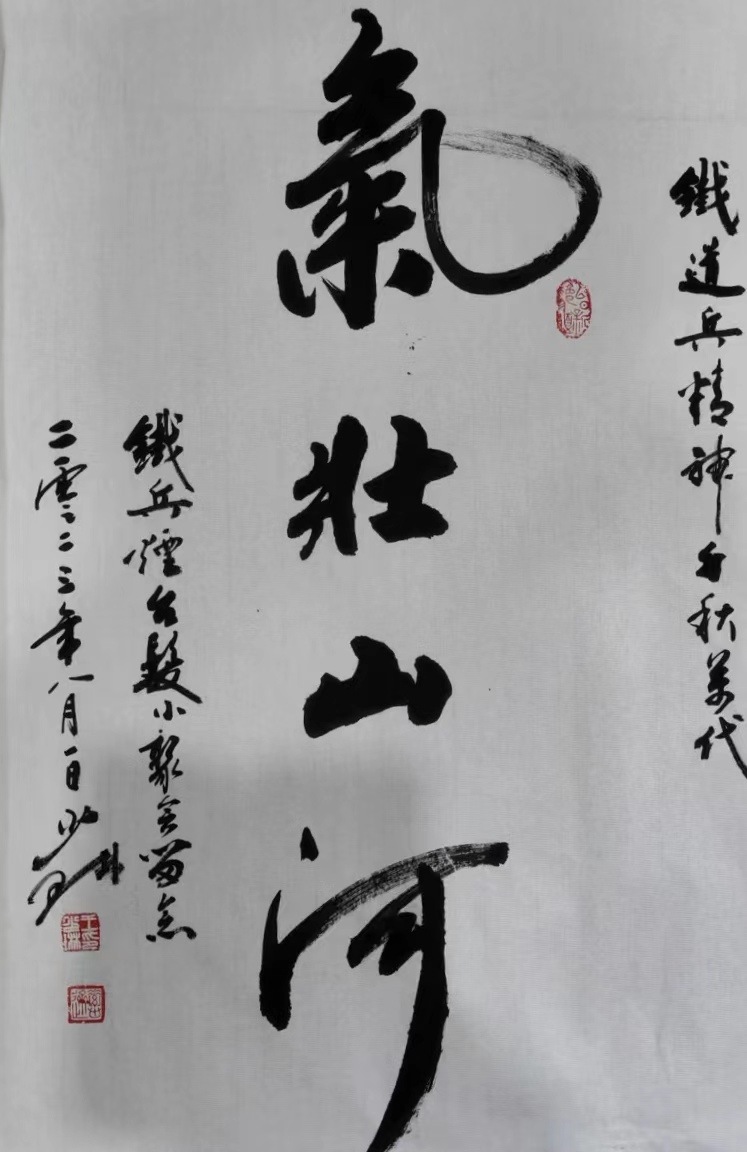 鐵道兵精神千秋萬代
氣壯山河
鐵兵煙台發小聚會留念
二零二三年八月一日